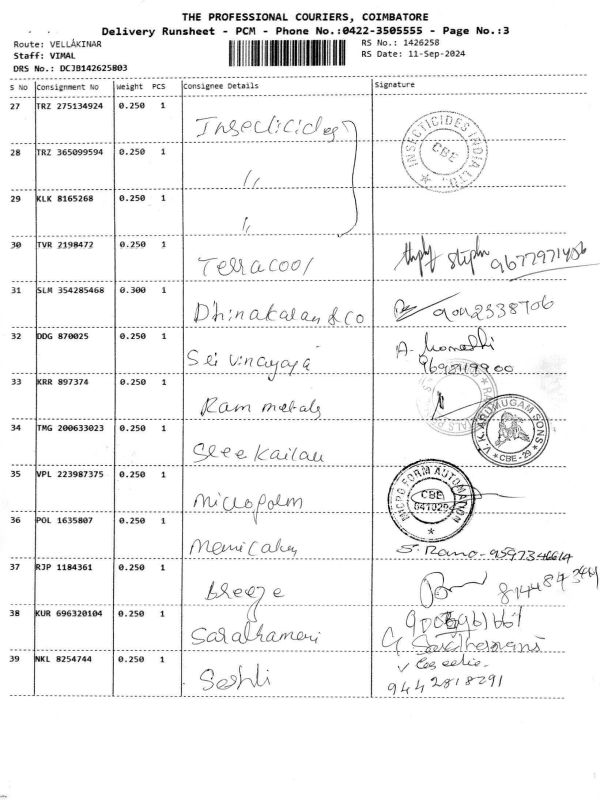 THE PROFESSIONAL COURIERS, COIMBATORE
Delivery Runsheet - PCM - Phone No.:0422-3505555 - Page No.:3
Route: VELLAKINAR
RS No.: 1426258
Staff: VIMAL
RS Date: 11-Sep-2024
DRS No.: DCJB142625803
S No Consignment No Weight PCS Consignee Details Signature
27 TRZ 275134924 0.250 1 Insecticides
INSECTICIDES INDIA LTD. * CBE *
28 TRZ 365099594 0.250 1 "
29 KLK 8165268 0.250 1 "
30 TVR 2198472 0.250 1 Terracool
31 SLM 354285468 0.300 1 Dhinakaran & Co 9042338706
32 DDG 870025 0.250 1 Sri Vinayaga A.
33 KRR 897374 0.250 1 Ram metals
34 TMG 200633023 0.250 1 Sree Kailau
V.K. ARUMUGAM SONS * CBE-29 *
35 VPL 223987375 0.250 1 Microform
MICRO FORM AUTOMATION CBE 641029 *
36 POL 1635807 0.250 1
37 RJP 1184361 0.250 1 Breeze
38 KUR 696320104 0.250 1
39 NKL 8254744 0.250 1
9442818291